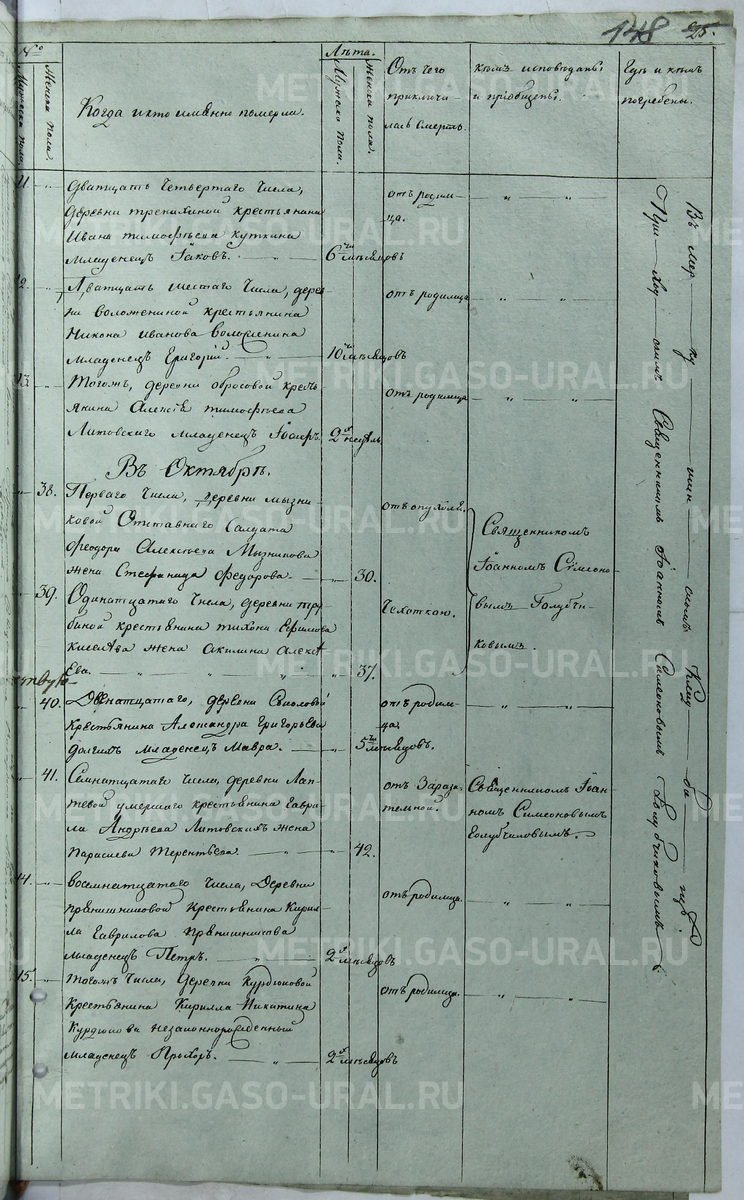 148
25.
№
Лѣта.
Мужска пола.
Женска пола.
Когда и кто именно померли.
Мужска пола.
Женска пола.
Отъ чего
приключи-
лась смерть.
кѣмъ исповѣданы
и пріобщены.
Гдѣ и кѣмъ
погребены.
11
дватцать четвертаго числа,
деревни крестьянина
Ивана тимофѣева куткина
младенецъ Іаковъ.
6ти мѣсяцовъ
отъ родим-
ца.
12.
Дватцать шестаго числа, дерев-
ни воложениной крестьянина
Никона Иванова Воложенина
младенецъ Григорій.
10ти мѣсяцовъ
отъ родимца
13.
тогожъ, деревни обросовой кресть-
янина Алексѣя тимофѣева
Литовскаго младенецъ
2хъ недѣль
отъ родимца
Въ Октябрѣ.
38.
Перваго числа, деревни мызни-
ковой Отставнаго Салдата
Феодора Алексѣева Мызникова
жена Стефанида Федорова.
30.
отъ опухоли.
Священникомъ
Іоанномъ Симеоно-
вымъ Голубчи-
ковымъ.
39.
Одинатцатаго числа, деревни тру-
биной крестьянина тихона Ефимова
киселева жена Акилина Алексѣ-
ева.
37.
Чехоткою.
40.
Двенатцатаго, деревни Соколовой
крестьянина Алѣксандра Григорьева
Долгихъ младенецъ Мавра.
5ти мѣсяцовъ.
отъ родим-
ца.
41.
Семнатцатаго числа, деревни Лап-
тевой умершаго крестьянина Гаври-
ла Андрѣева Литовскихъ жена
Параскева Терентьева.
42.
отъ Зарази-
тельной.
Священникомъ Іоан-
номъ Симеоновымъ
Голубчиковымъ.
14.
восемнатцатаго числа, Деревни
прянишниковой крестьянина Кирил-
ла Гаврилова Прянишникова
младенецъ Петръ.
2хъ мѣсяцовъ
отъ родимца.
15.
тогожъ числа, деревни Курдюковой
Крестьянина Кирилла Никитина
Курдюкова незаконнорожденный
младенецъ Прохоръ.
2хъ мѣсяцовъ
отъ родимца.
Приходскимъ Священникомъ Іоанномъ Симеоновымъ Голубчиковымъ
METRIKI.GASO-URAL.RU